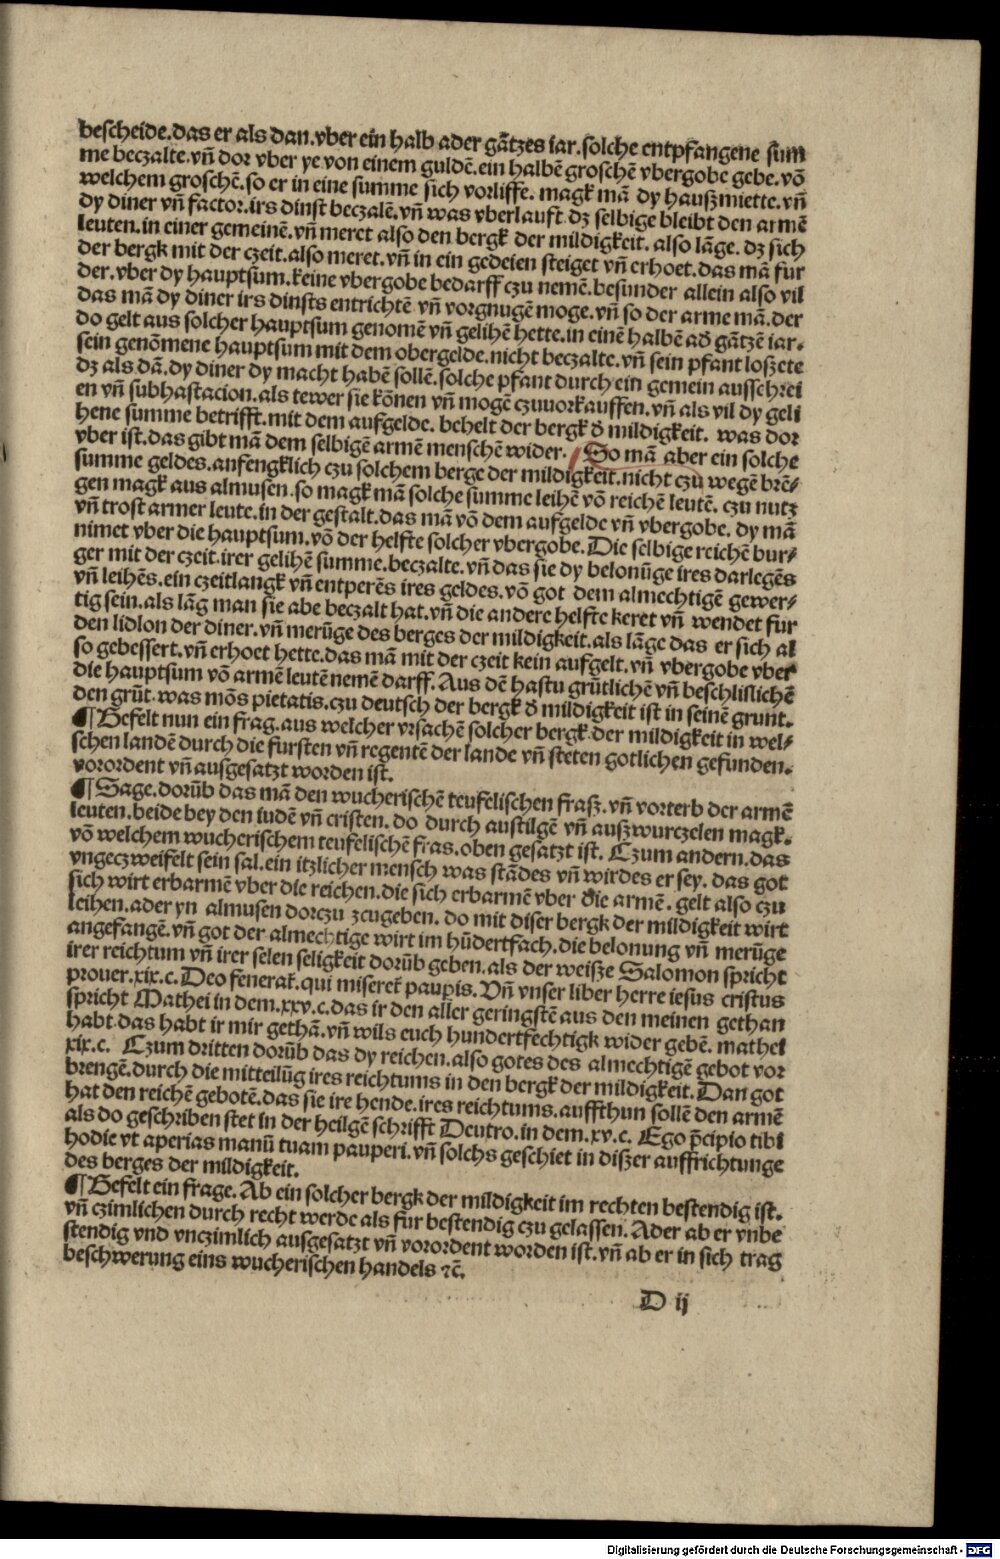 bescheide.das er als dan.vber ein halb ader gātzes iar.solche entpfangene sum
me beczalte.vn̄ dor vber ye von einem guldē.ein halbē groschē vbergobe gebe.vō
welchem groschē.so er in eine summe sich vorliffe. magk mā dy haußmiette.vn̄
dy diner vn̄ factor.irs dinst beczalē.vn̄ was vberlauft dz selbige bleibt den armē
leuten.in einer gemeinē.vn̄ meret also den bergk der mildigkeit. also lāge. dz sich
der bergk mit der czeit.also meret.vn̄ in ein gedeien steiget vn̄ erhoet.das mā fur
der.vber dy hauptsum̄.keine vbergobe bedarff czu nemē.besunder allein also vil
das mā dy diner irs dinsts entrichtē vn̄ vorgnugē moge.vn̄ so der arme mā.der
do gelt aus solcher hauptsum genomē vn̄ gelihē hette.in einē halbē ad̄ gātzē iar.
sein genōmene hauptsum mit dem obergelde.nicht beczalte.vn̄ sein pfant loszete
dz als dā.dy diner dy macht habē sollē.solche pfant durch ein gemein ausschrei
en vn̄ subhastacion.als tewer sie kōnen vn̄ mogē czuuorkauffen.vn̄ als vil dy geli
hene summe betrifft.mit dem aufgelde. behelt der bergk d̄ mildigkeit. was dor
vber ist.das gibt mā dem selbigē armē menschē wider. So mā aber ein solche
summe geldes.anfengklich czu solchem berge der mildigkeit.nicht czu wegē brē⸗
gen magk aus almusen.so magk mā solche summe leihē vō reichē leutē. czu nutz
vn̄ trost armer leute.in der gestalt.das mā vō dem aufgelde vn̄ vbergobe. dy mā
nimet vber die hauptsum.vō der helfte solcher vbergobe.Die selbige reichē bur⸗
ger mit der czeit.irer gelihē summe.beczalte.vn̄ das sie dy belonūge ires darlegēs
vn̄ leihēs.ein czeitlangk vn̄ entperēs ires geldes.vō got dem almechtigē gewer⸗
tig sein.als lāg man sie abe beczalt hat.vn̄ die andere helfte keret vn̄ wendet fur
den lidlon der diner.vn̄ merūge des berges der mildigkeit.als lāge das er sich al
so gebessert.vn̄ erhoet hette.das mā mit der czeit kein aufgelt.vn̄ vbergobe vber
die hauptsum vō armē leutē nemē darff.Aus dē hastu grūtlichē vn̄ beschlislichē
den grūt.was mōs pietatis.czu deutsch der bergk d̄ mildigkeit ist in seinē grunt.
¶ Gefelt nun ein frag.aus welcher vrsachē solcher bergk.der mildigkeit in wel⸗
schen landē durch die fursten vn̄ regentē der lande vn̄ steten gotlichen gefunden.
vorordent vn̄ ausgesatzt worden ist.
¶ Sage.dorūb das mā den wucherischē teufelischen fraß.vn̄ vorterb der armē
leuten.beide bey den iudē vn̄ cristen.do durch austilgē vn̄ außwurczelen magk.
vō welchem wucherischem teufelischē fras.oben gesatzt ist. Czum andern.das
vngeczweifelt sein sal.ein itzlicher mensch was stādes vn̄ wirdes er sey. das got
sich wirt erbarmē vber die reichen.die sich erbarmē vber die armē. gelt also czu
leihen.ader yn almusen dorczu zcugeben. do mit diser bergk der mildigkeit wirt
angefangē.vn̄ got der almechtige wirt im hūdertfach.die belonung vn̄ merūge
irer reichtum vn̄ irer selen seligkeit dorūb geben.als der weisze Salomon spricht
prouer.xix.c.Deo fenerat̄.qui miseret̄ paup̲is.Vn̄ vnser liber herre iesus cristus
spricht Mathei in dem.xxv.c.das ir den aller geringstē aus den meinen gethan
habt.das habt ir mir gethā.vn̄ wils euch hundertfechtigk wider gebē. mathei
xix.c. Czum dritten dorūb das dy reichen.also gotes des almechtigē gebot vor
brengē.durch die mitteilūg ires reichtums in den bergk der mildigkeit.Dan got
hat den reichē gebotē.das sie ire hende.ires reichtums.auffthun sollē den armē
als do geschriben stet in der heilgē schrifft Deutro.in dem.xv.c. Ego p̄cipio tibi
hodie vt aperias manū tuam pauperi.vn̄ solchs geschiet in diszer auffrichtunge
des berges der mildigkeit.
¶ Gefelt ein frage.Ab ein solcher bergk der mildigkeit im rechten bestendig ist.
vn̄ czimlichen durch recht werde als fur bestendig czu gelassen.Ader ab er vnbe
stendig vnd vnczimlich ausgesatzt vn̄ vorordent worden ist.vn̄ ab er in sich trag
beschwerung eins wucherischen handels ⁊c̄.
D ij
Digitalisierung gefördert durch die Deutsche Forschungsgemeinschaft - DFG